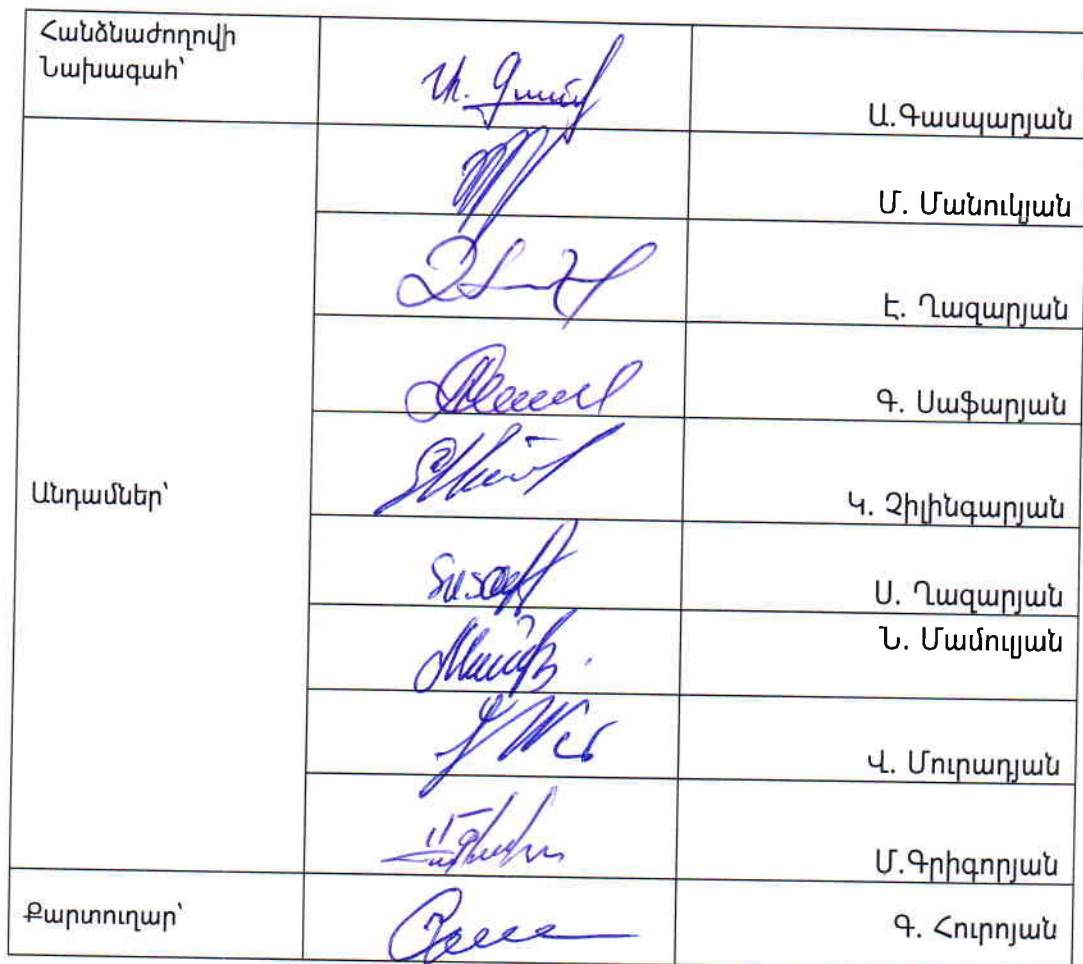 Հանձնաժողովի
Նախագահ՝
Ա.Գասպարյան
Անդամներ՝
Մ. Մանուկյան
Է. Ղազարյան
Գ. Սաֆարյան
Կ. Չիլինգարյան
Ս. Ղազարյան
Ն. Մամուլյան
Վ. Մուրադյան
Մ.Գրիգորյան
Քարտուղար՝
Գ. Հուրոյան